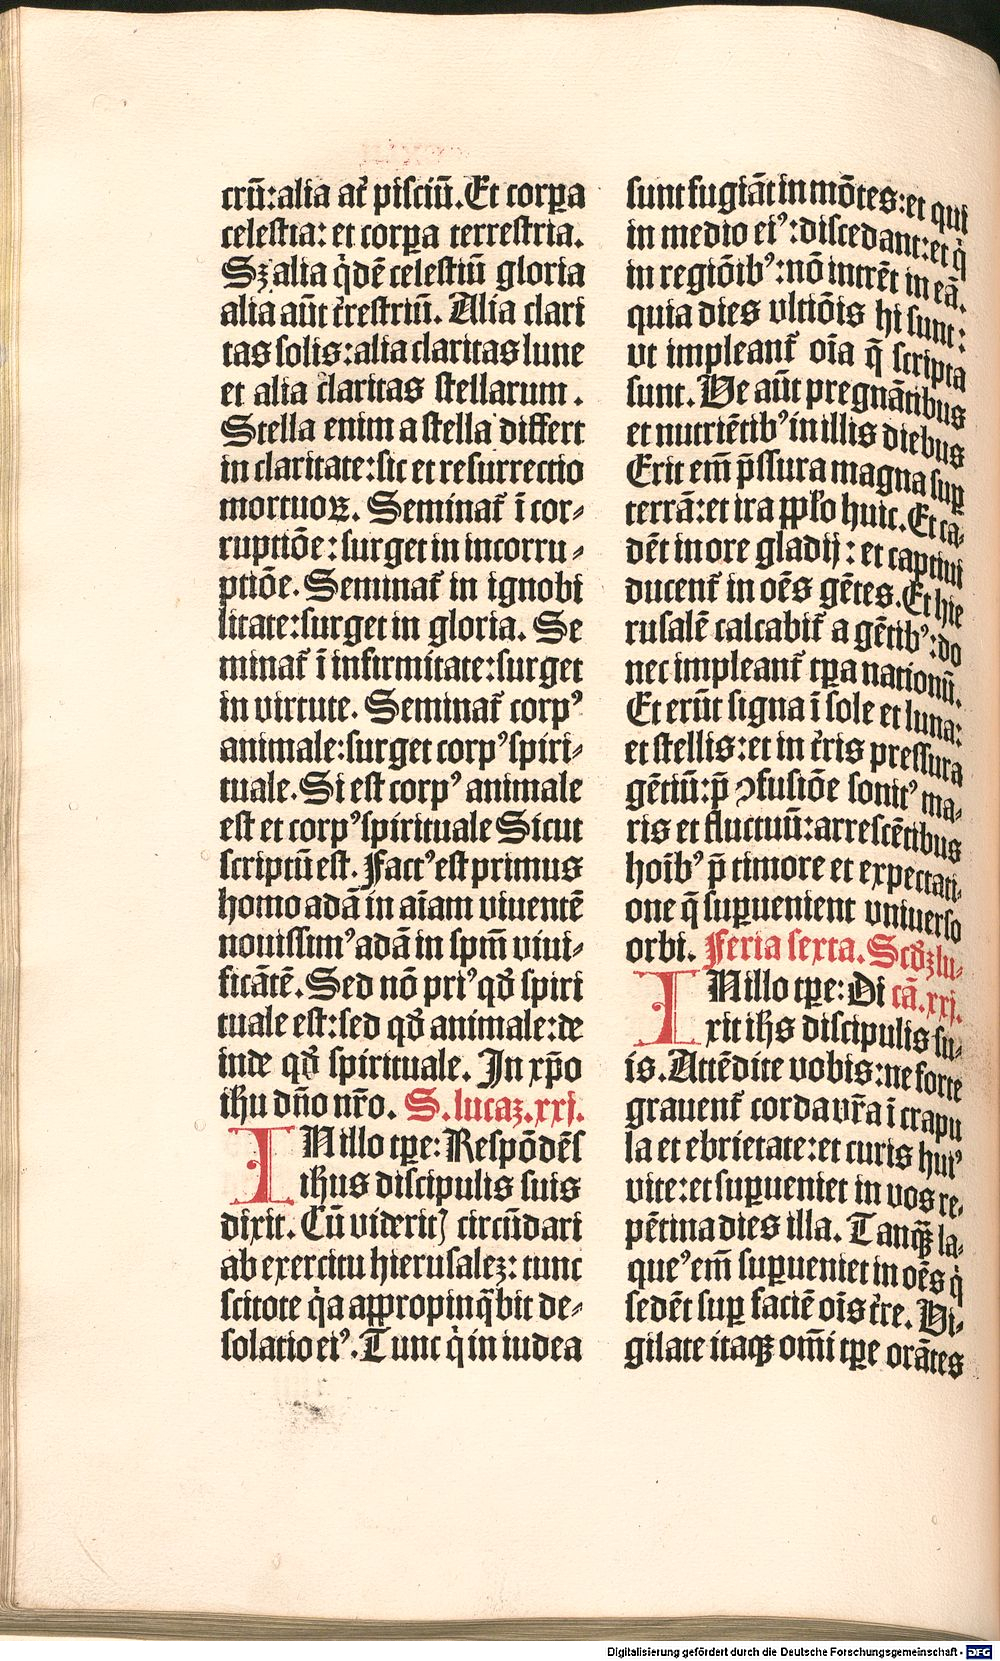 crū:alia at̄ pisciū.Et corꝑa
celestia: et corꝑa terrestria.
Sꝫ alia q̇dē celestiū gloria
alia aūt t̄restriū. Alia clari
tas solis:alia claritas lune
et alia claritas stellarum .
Stella enim a stella differt
in claritate:sic et resurrectio
mortuoꝝ. Seminat̄ ī cor⸗
ruptiōe: surget in incorru⸗
ptiōe. Seminat̄ in ignobi
litate:surget in gloria. Se
minat̄ ī infirmitate:surget
in virtute. Seminat̄ corpꝰ
animale:surget corpꝰ spiri⸗
tuale. Si est corpꝰ animale
est et corpꝰ spirituale Sicut
scriptū est. Factꝰ est primus
homo adā in aīam viuentē
nouissimꝰ adā in spm̄ viui⸗
ficātē. Sed nō priꝰ qd̄ spiri
tuale est:sed qd̄ animale:de
inde qd̄ spirituale. In xp̄o
ihu dn̄o nr̄o. S. lucaꝫ. xxj.
IN illo tꝑe: Respōdēs
ihus discipulis suis
dixit. Cū viderit) circūdari
ab exercitu hierusaleꝫ: tunc
scitote q̇a aꝓpropinq̇bit de⸗
solatio eiꝰ. Tunc q̇ in iudea
sunt fugiāt in mōtes:et qui
in medio eiꝰ:discedant:et q̇
in regiōibꝰ:nō intrēt in eā.
quia dies vltiōis hi sunt:
vt impleant̄ oīa q̄ scripta
sunt. Ve aūt pregnātibus
et nutriētibꝰ in illis diebus
Erit em̄ p̄ssura magna suꝑ
terrā:et ira ꝓplo huic. Et ca⸗
dēt in ore gladij : et captiui
ducent̄ in oēs gētes. Et hie
rusalē calcabit̄ a gētibꝰ:do
nec impleant̄ tꝑa nationū.
Et erūt signa ī sole et luna:
et stellis:et in t̄ris pressura
gētiū:p̄ ꝯfusiōe sonitꝰ ma⸗
ris et fluctuū:arrescētibus
hoībꝰ p̄ timore et expectati⸗
one q̄ suꝑuenient vniuerso
orbi. Feria sexta. Scd̄ꝫ lu⸗
IN illo tꝑe: Di cā. xxj.
xit ihs̄ discipulis su⸗
is. Attēdite vobis:ne forte
grauent̄ corda vr̄a ī crapu
la et ebrietate:et curis huiꝰ
vite:et suꝑueniet in vos re⸗
pētina dies illa. Tanqꝫ la⸗
queꝰ em̄ suꝑueniet in oēs q̇
sedēt suꝑ faciē oīs t̄re. Vi⸗
gilate itaqꝫ om̄i tꝑe orātes
Digitalisierung gefördert durch die Deutsche Forschungsgemeinschaft - DFG